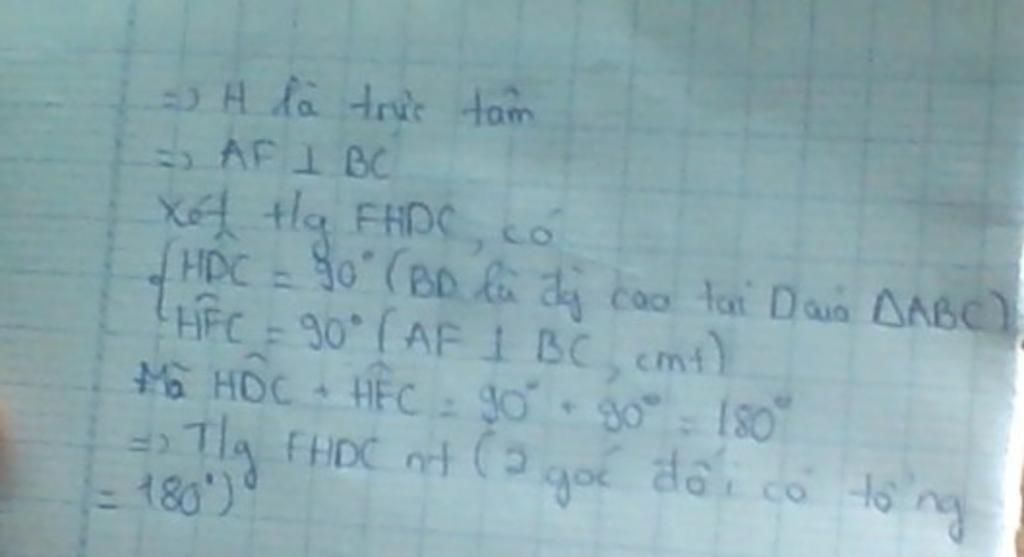 => H là trực tâm
=> AF ⊥ BC
Xét t/g FHDC, có
{ HD̂C = 90° (BD là đg cao tại D của ΔABC)
HF̂C = 90° (AF ⊥ BC, cmt)
Mà HD̂C + HF̂C = 90° + 90° = 180°
=> T/g FHDC nt (2 góc đối có tổng
= 180°)